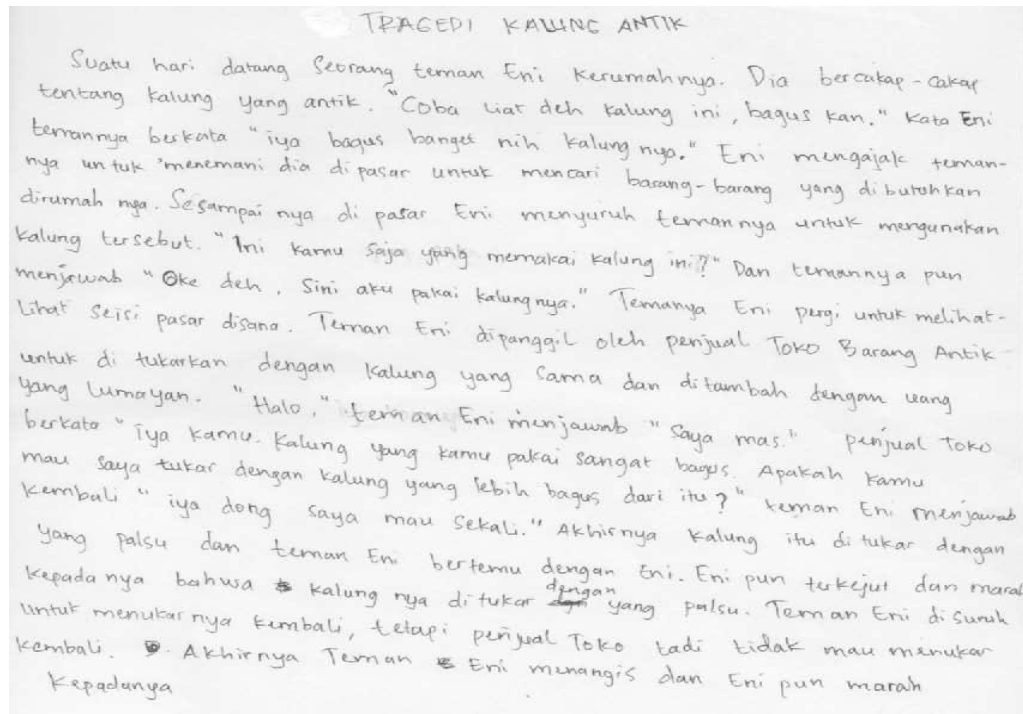 TRAGEDI KALUNG ANTIK
Suatu hari datang Seorang teman Eni kerumahnya. Dia bercakap-cakap
tentang kalung yang antik. "Coba liat deh kalung ini, bagus kan." Kata Eni
temannya berkata "iya bagus banget nih kalung nya." Eni mengajak teman-
nya untuk 'menemani dia di pasar untuk mencari barang-barang yang dibutuhkan
dirumah nya. Sesampai nya di pasar Eni menyuruh temannya untuk mengunakan
kalung tersebut. "Ini kamu saja yang memakai kalung ini?" Dan temannya pun
menjawab "Oke deh. Sini aku pakai kalungnya." Temanya Eni pergi untuk melihat-
Lihat seisi pasar disana. Teman Eni dipanggil oleh penjual Toko Barang Antik
untuk di tukarkan dengan kalung yang sama dan ditambah dengan uang
yang lumayan. "Halo," teman Eni menjawab "Saya mas." penjual Toko
berkata "iya kamu. Kalung yang kamu pakai sangat bagus. Apakah kamu
mau saya tukar dengan kalung yang lebih bagus dari itu?" teman Eni menjawab
kembali "iya dong saya mau sekali." Akhirnya kalung itu di tukar dengan
yang palsu dan teman Eni bertemu dengan Eni. Eni pun terkejut dan marah
kepada nya bahwa kalung nya ditukar dengan yang palsu. Teman Eni disuruh
untuk menukar nya kembali, tetapi penjual Toko tadi tidak mau menukar
kembali. Akhirnya Teman Eni menangis dan Eni pun marah
kepadanya